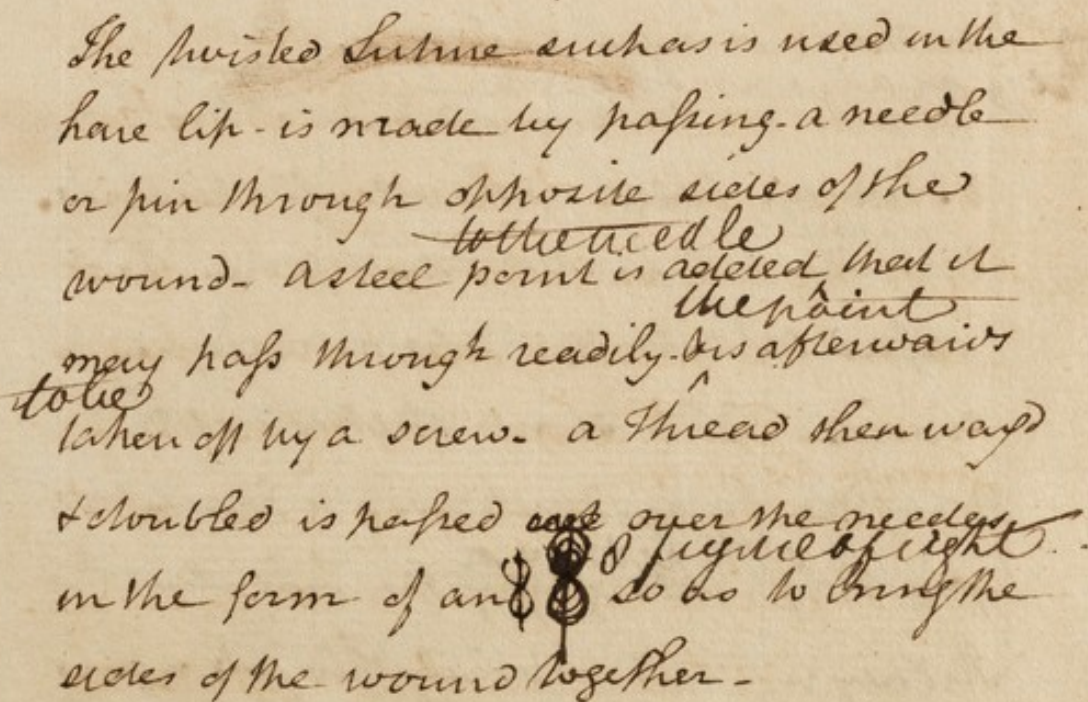 The twisted Suture such as is used in the
hare lip - is made by paſsing - a needle
or pin through opposite sides of the
to the needle
wound - a steel point is added that it
the point
may paſs through readily - & is afterwards
to be
taken off by a screw - a Thread then waxd
& doubled is paſsed over the needes
8 figure of eight
in the form of an 8 so as to bring the
sides of the wound together -